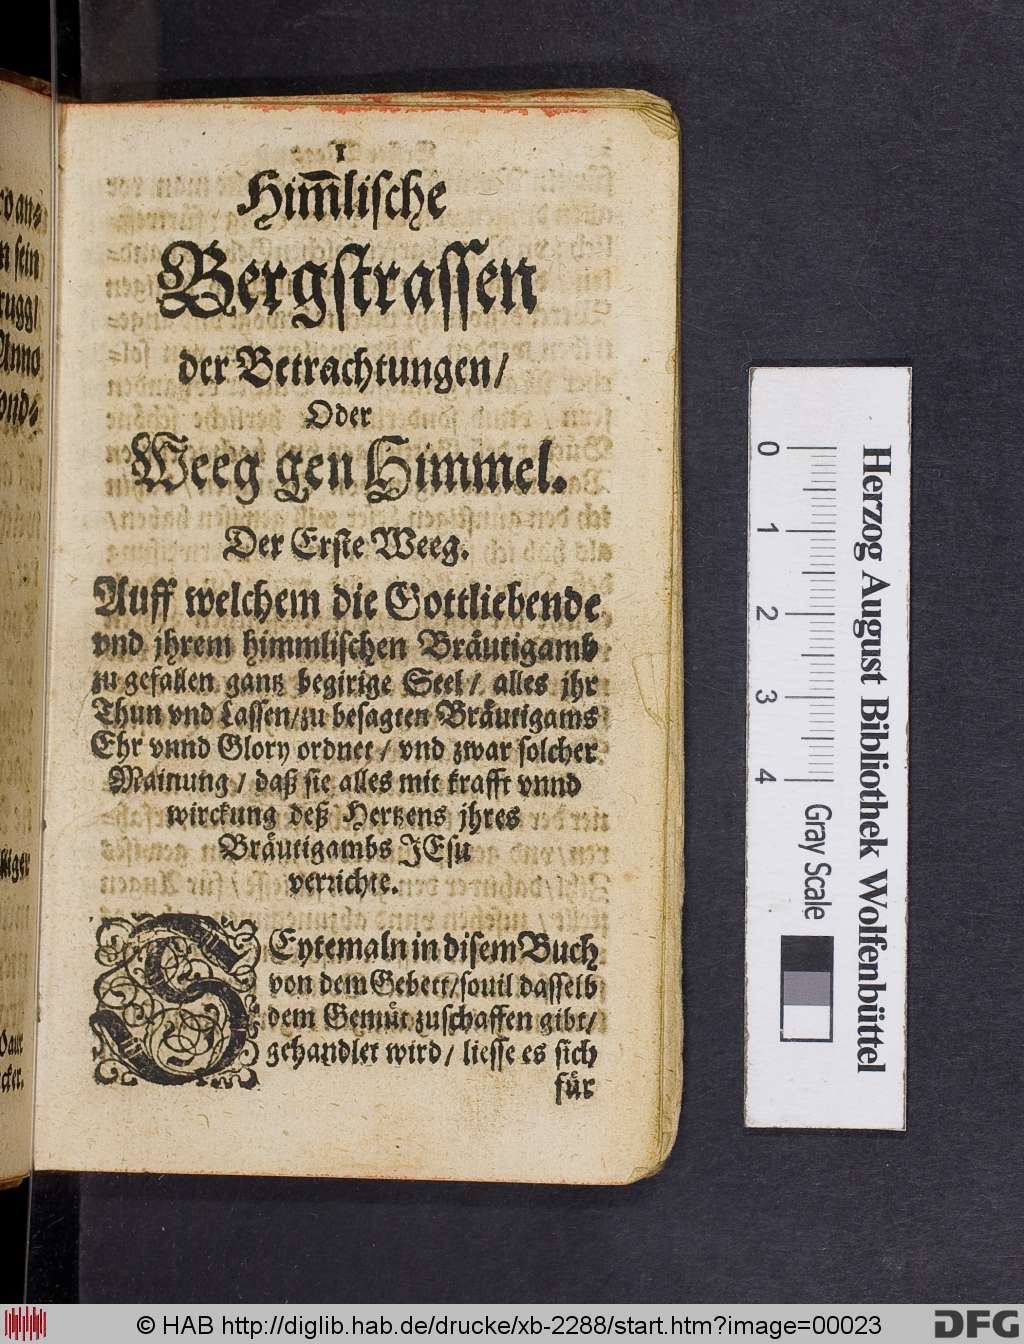 1
Him̃lische
Bergstrassen
der Betrachtungen/
Oder
Weeg gen Himmel.
Der Erste Weeg.
Auff welchem die Gottliebende
vnd jhrem himmlischen Bräutigamb
zu gefallen gantz begirige Seel / alles jhr
Thun vnd Lassen/zu besagten Bräutigams
Ehr vnnd Glory ordnet / vnd zwar solcher
Mainung / daß sie alles mit krafft vnnd
wirckung deß Hertzens jhres
Bräutigambs JEsu
verrichte.
SEytemaln in disem Buch
von dem Gebett/souil dasselb
dem Gemüt zuschaffen gibt/
gehandlet wird / liesse es sich
für
an-
n sein
rugg/
Anno
vnd-
cker.
0 1 2 3 4
Gray Scale
Herzog August Bibliothek Wolfenbüttel
© HAB http://diglib.hab.de/drucke/xb-2288/start.htm?image=00023
DFG